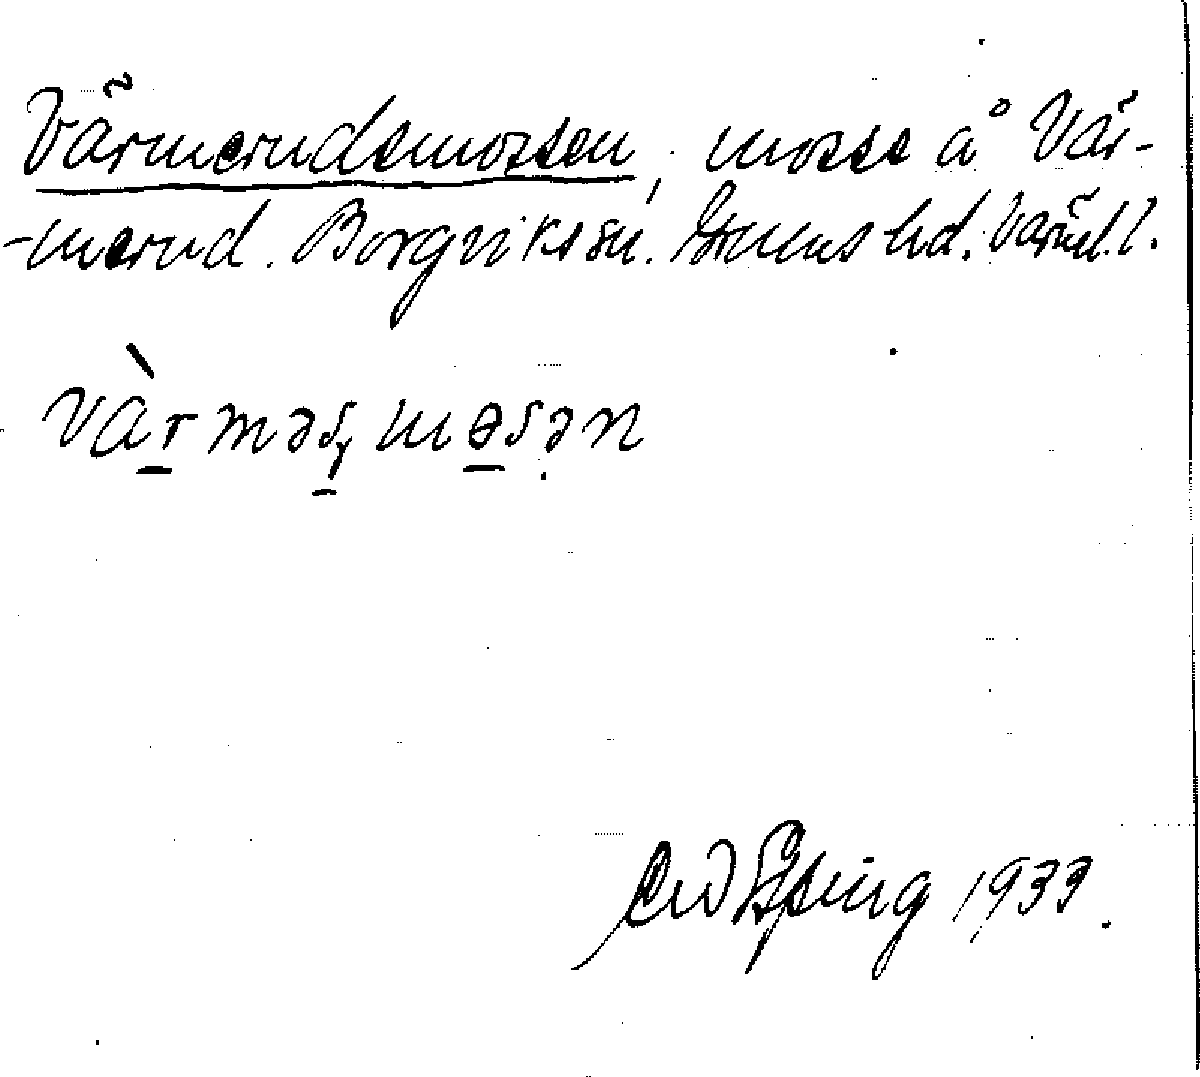 Värmerudsmossen, mosse å Vär-
-merud. Borgviks sn. Grums hd. Värml. l.
vàrməsmɵsən
1933.